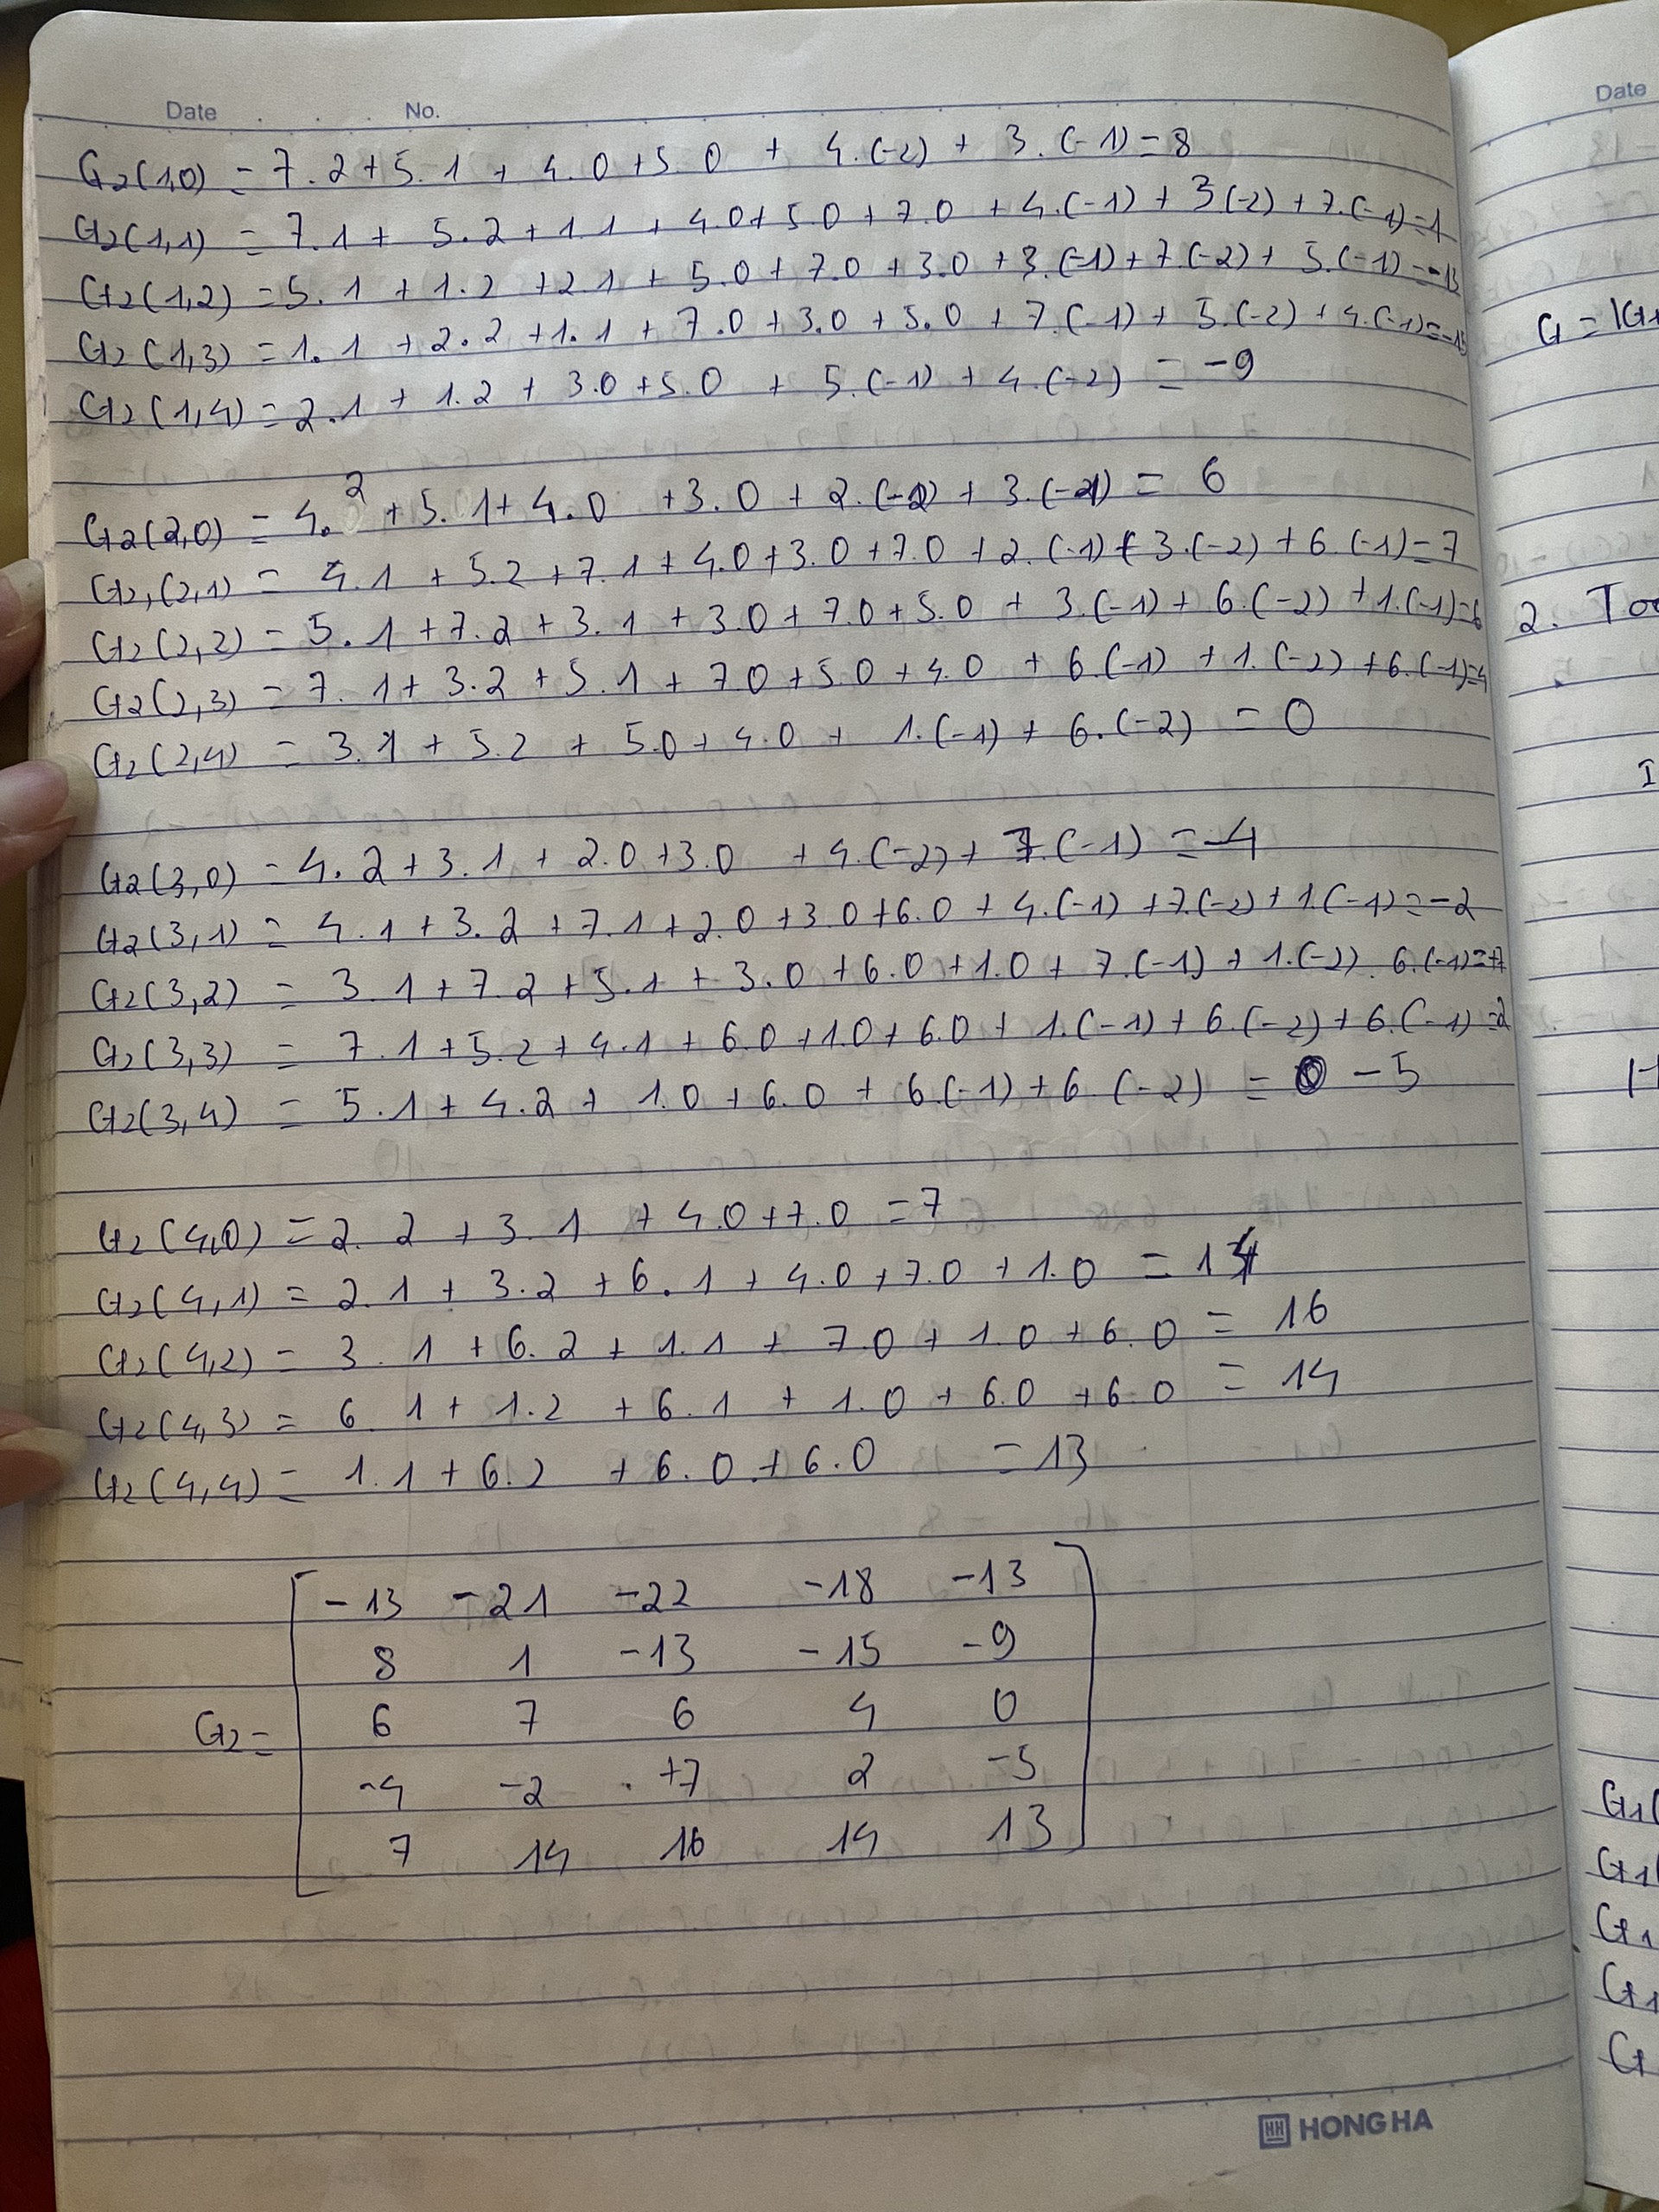 Date No.
G2(1,0) = 7.2+5.1 + 4.0+5.0 + 4.(-2) + 3.(-1)=8
G2(1,1) = 7.1+ 5.2+1.1 + 4.0+5.0+7.0 +4.(-1) + 3(-2)+7.(-1)=1
G2(1,2) =5.1 +1.2 +2.1 + 5.0+7.0 +3.0 +3.(-1)+7.(-2)+ 5.(-1)=-13
G2(1,3) =1.1 +2.2 +1.1 + 7.0+3.0 +5.0 + 7.(-1)+ 5.(-2) +4.(-1)=-15
G2(1,4)=2.1 + 1.2 + 3.0+5.0 + 5.(-1) + 4.(-2) = -9
G2(2,0) = 4.2 +5.1+4.0 +3.0 + 2.(-2) + 3.(-1) = 6
G2,(2,1) = 4.1 + 5.2 +7.1+4.0+3.0+7.0 +2.(-1)+3.(-2)+6.(-1)=7
G2(2,2) = 5.1+7.2+3.1+3.0+7.0+5.0 + 3.(-1)+ 6.(-2) +1.(-1)=6
G2(2,3) =7.1+3.2+5.1+70+5.0+4.0 +6.(-1) +1.(-2) +6.(-1)=4
G2(2,4) = 3.1 + 5.2 + 5.0+4.0 + 1.(-1) + 6.(-2) = 0
G2(3,0) =4.2+3.1+2.0+3.0 +4.(-2)+ 7.(-1) =-4
G2(3,1) = 4.1+3.2+7.1+2.0+3.0+6.0+4.(-1)+7.(-2)+1.(-1)=-2
G2(3,2) = 3.1+7.2+5.1+3.0+6.0+1.0+7.(-1)+1.(-2). 6.(-1)=+7
G2(3,3) = 7.1+5.2+4.1+6.0+1.0+6.0+1.(-1)+6.(-2)+6.(-1)=2
G2(3,4) = 5.1+4.2+ 1.0+6.0 + 6(-1)+6.(-2) = -5
G2(4,0) =2.2 +3.1 +4.0+7.0 =7
G2(4,1) = 2.1 + 3.2 + 6.1 + 4.0+7.0 +1.0 = 14
G2(4,2) = 3.1 + 6.2 + 1.1 + 7.0+1.0+6.0 = 16
G2(4,3) = 6.1+ 1.2 +6.1 + 1.0 +6.0 +6.0 = 14
G2(4,4) = 1.1+6.2 + 6.0+6.0 =13
-13 -21 -22 -18 -13
8 1 -13 -15 -9
6 7 6 4 0
G2=
-4 -2 +7 2 -5
7 14 16 14 13
HH HONG HA
Date
2.
G1(
G1(
G1
G1
G